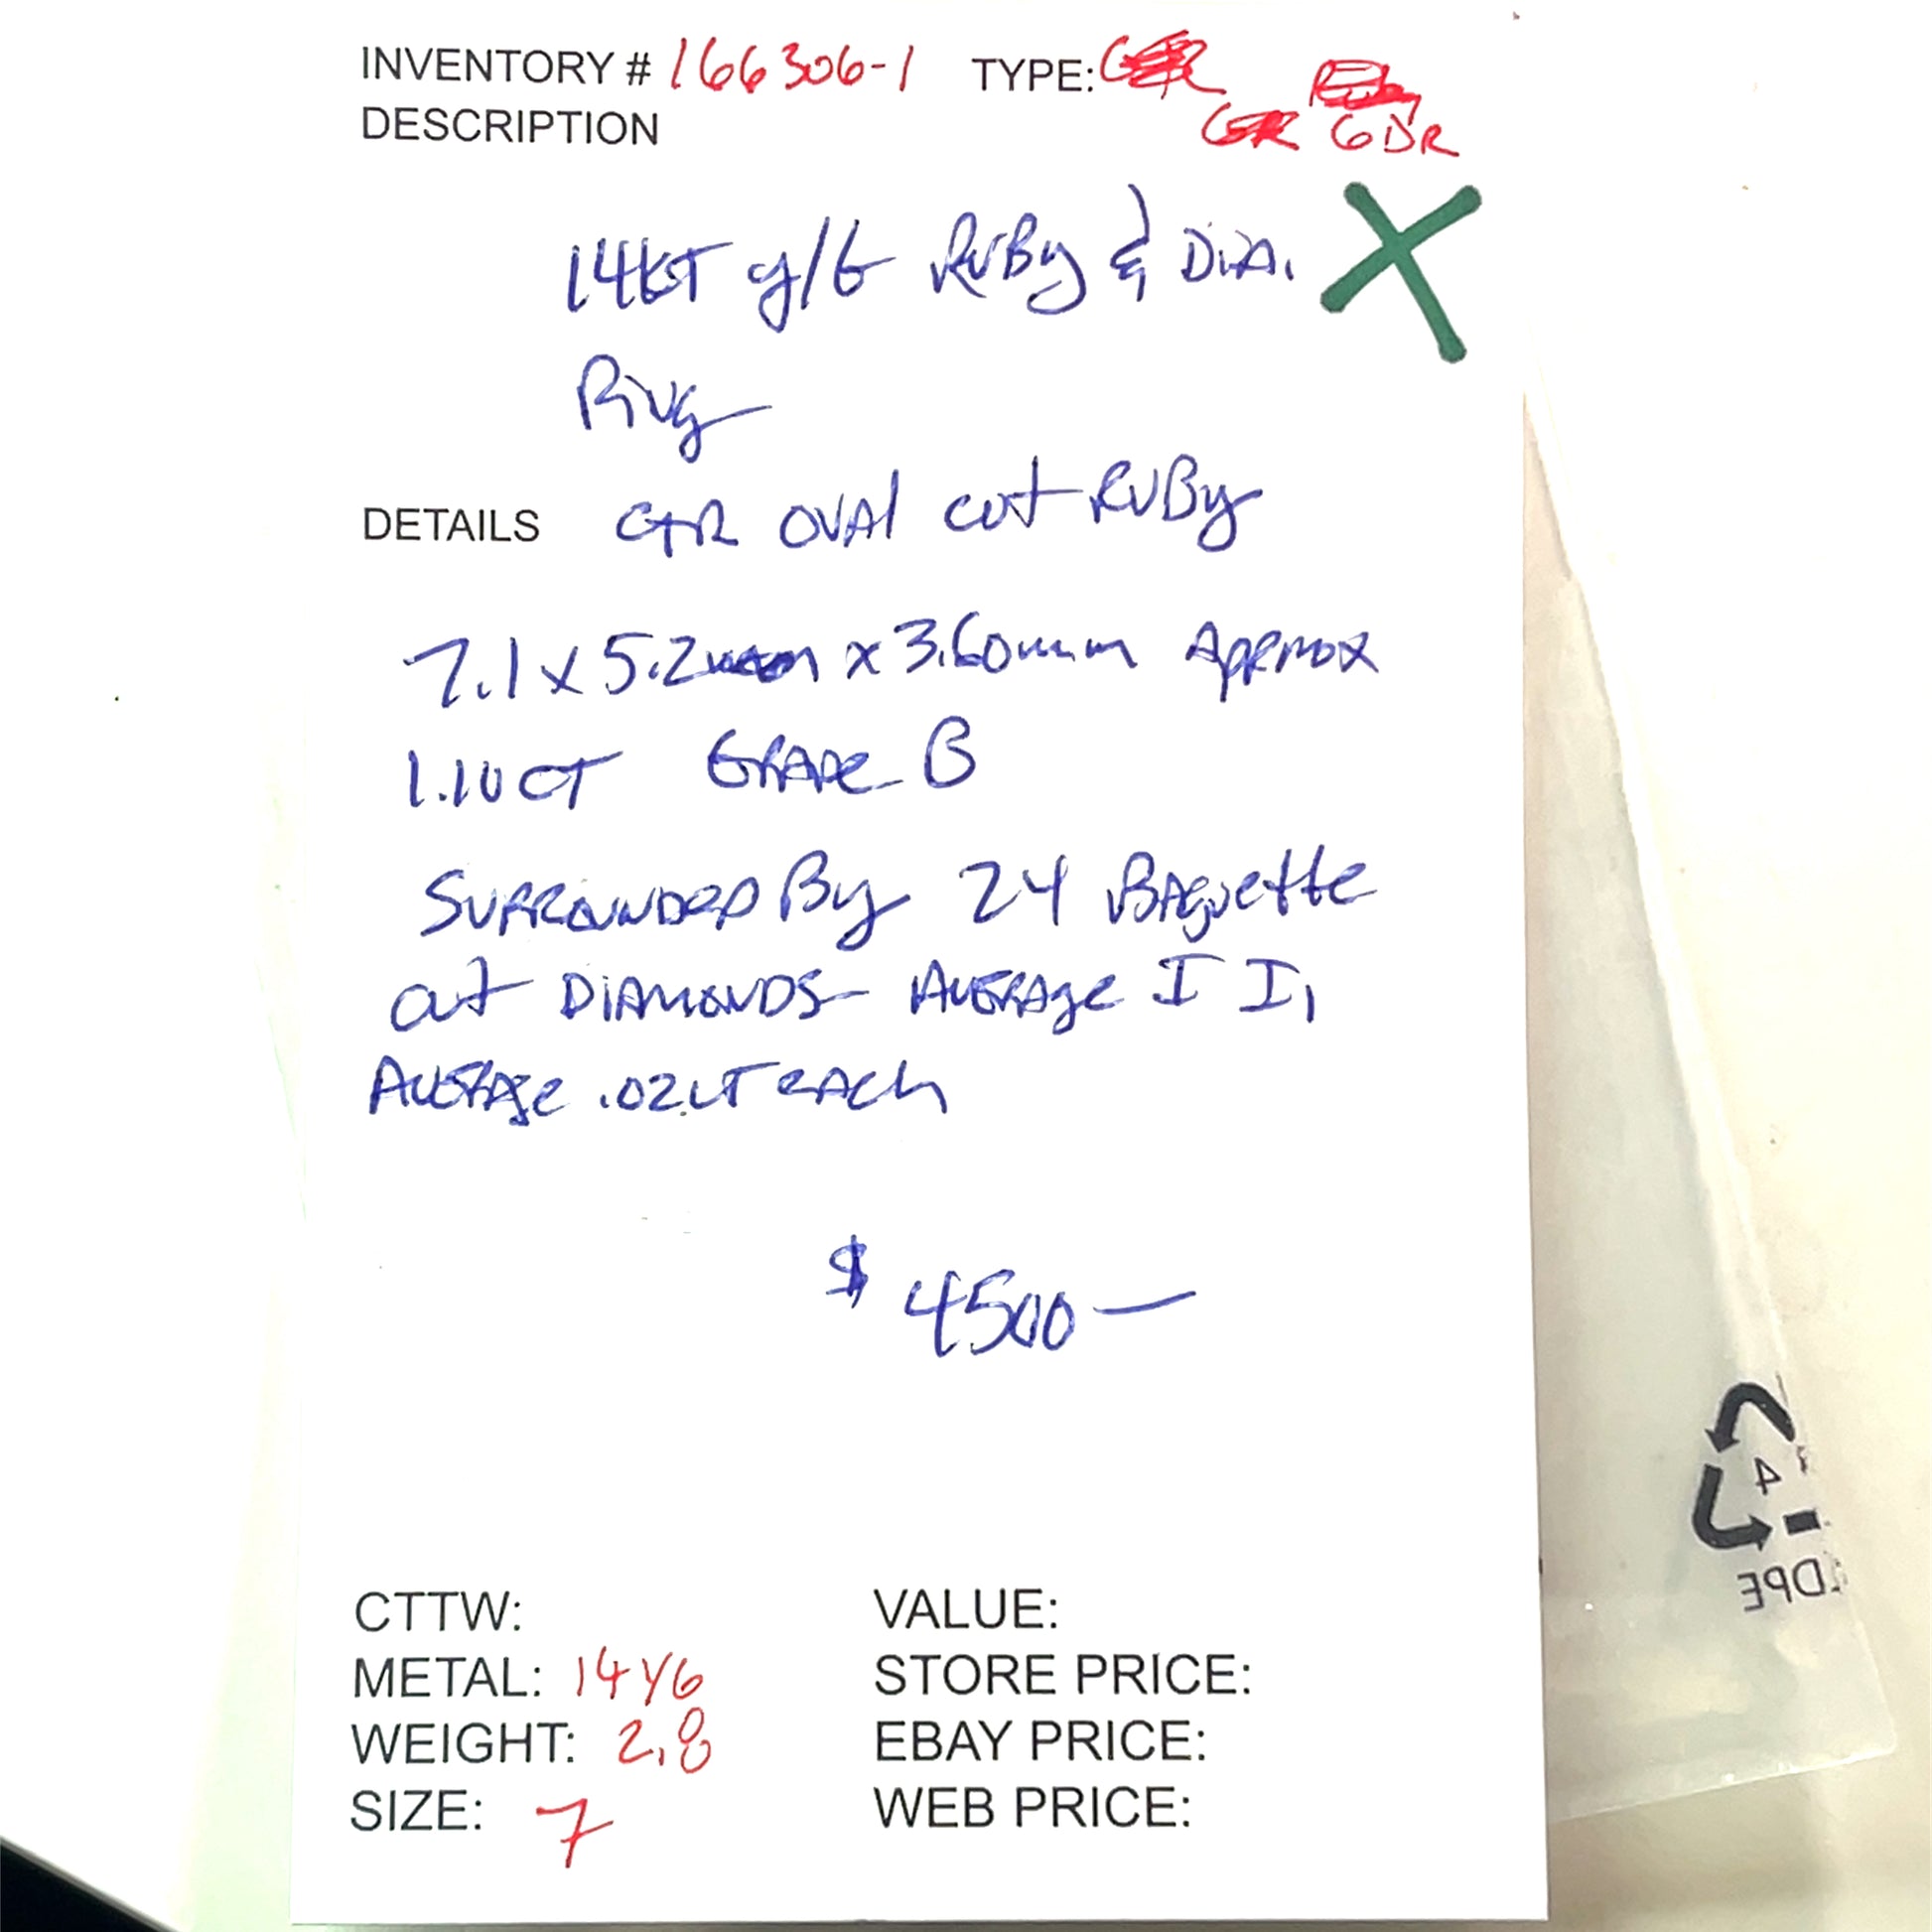 INVENTORY # 166306-1 TYPE: GDR
DESCRIPTION
14KT y/G RUBy & DiA.
Ring
DETAILS CTR OVAl cut RUBy
7.1 x 5.2mm x 3.60mm Approx
1.10 CT GRADe B
SURROUNDED By 24 BAguette
cut DiAMONDS AVERAge I I1
AVERAge .02CT eACh
$ 4500 —
CTTW:
VALUE:
METAL: 14YG
STORE PRICE:
WEIGHT: 2.8
EBAY PRICE:
SIZE: 7
WEB PRICE:
4
LDPE